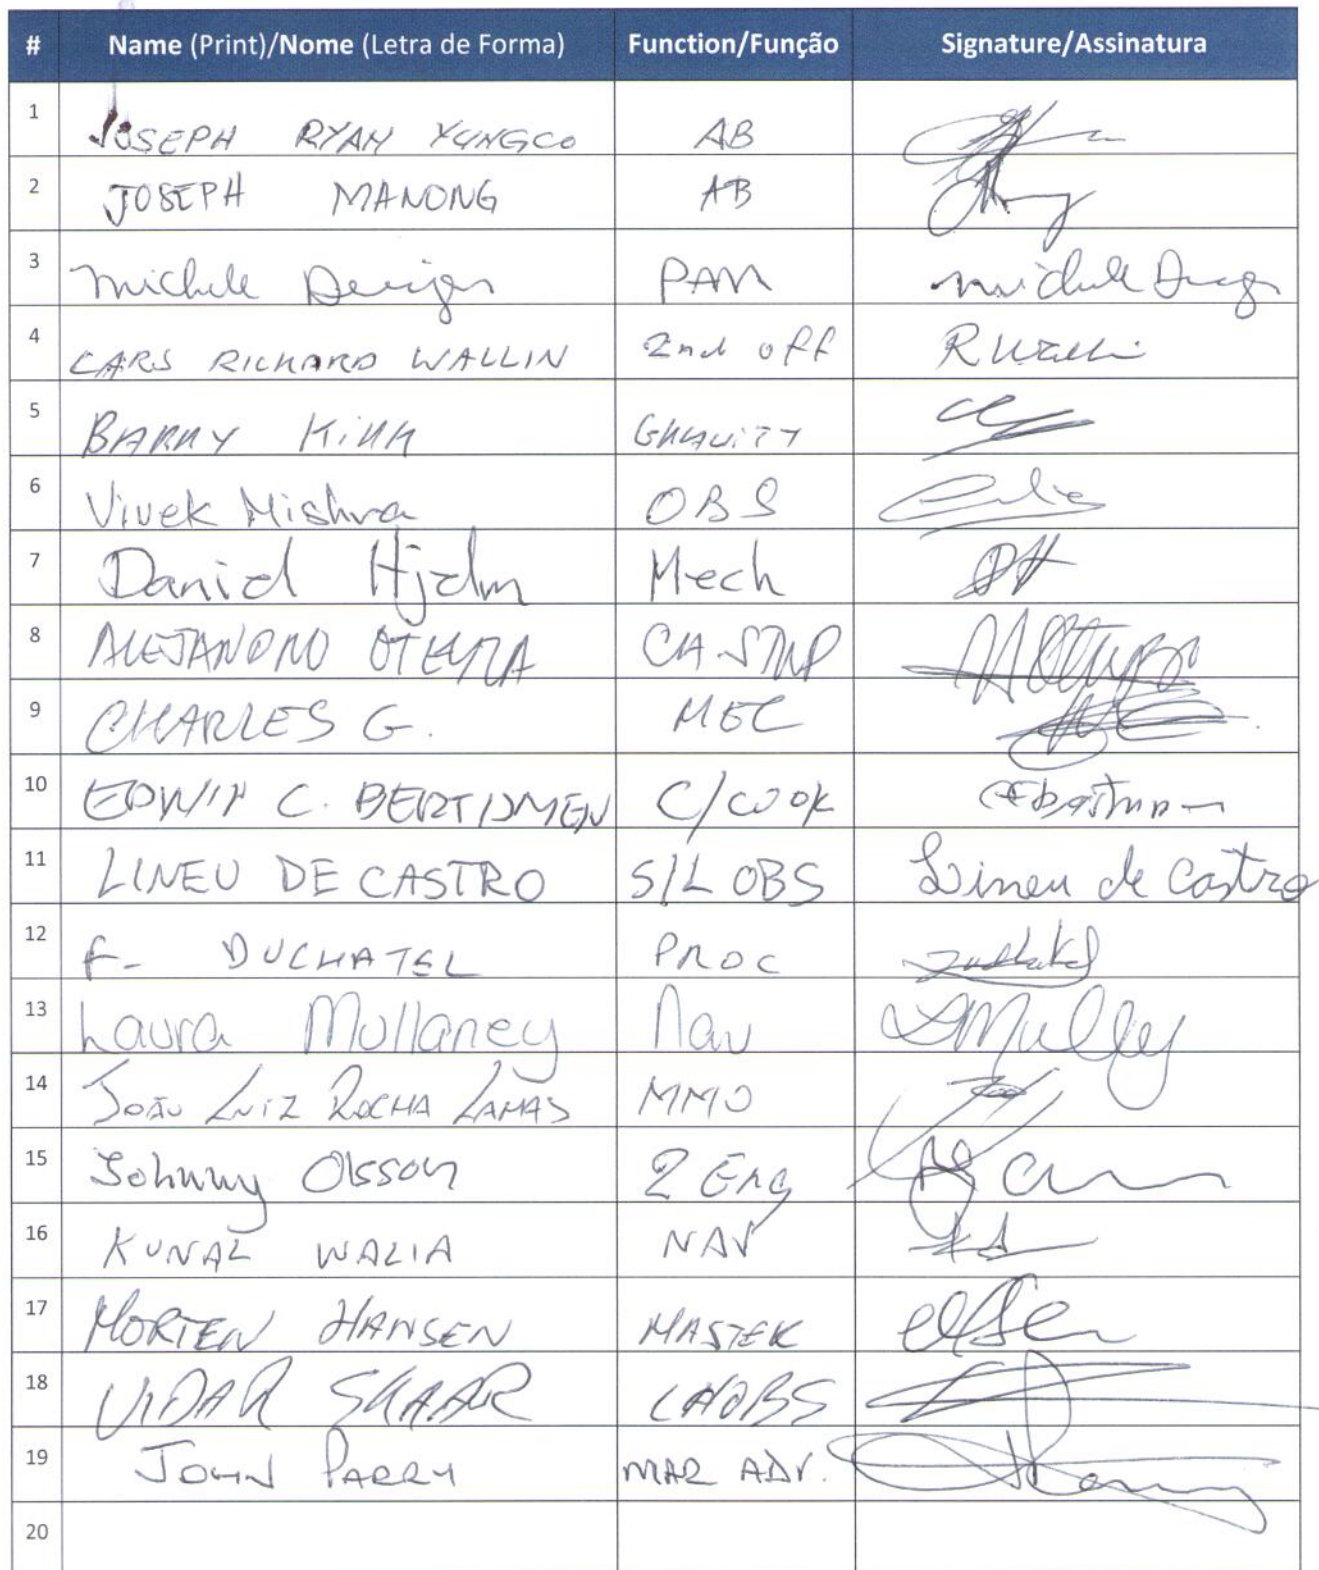 # Name (Print)/Nome (Letra de Forma) Function/Função Signature/Assinatura
1 JOSEPH RYAN YUNGCO AB
2 JOSEPH MANONG AB
3 Michele PAM michele
4 LARS RICHARD WALLIN 2nd off R Wallin
5 BARRY KIRK GRAVITY
6 Vivek Mishra OBS
7 Daniel Hjelm Mech DH
8 ALEJANDRO OTEYZA
9 CHARLES G. MEC
10 EDWIN C. C/COOK
11 LINEU DE CASTRO S/L OBS Lineu de Castro
12 F. DUCHATEL PROC
13 Laura Mullaney Nav
14 JOÃO LUIZ ROCHA LAMAS MMO
15 Johnny Olsson 2 Eng
16 KUNAL WALIA NAV
17 MORTEN HANSEN MASTER
18 VIDAR SKAAR CHOBS
19 JOHN PARRY MAR ADV.
20